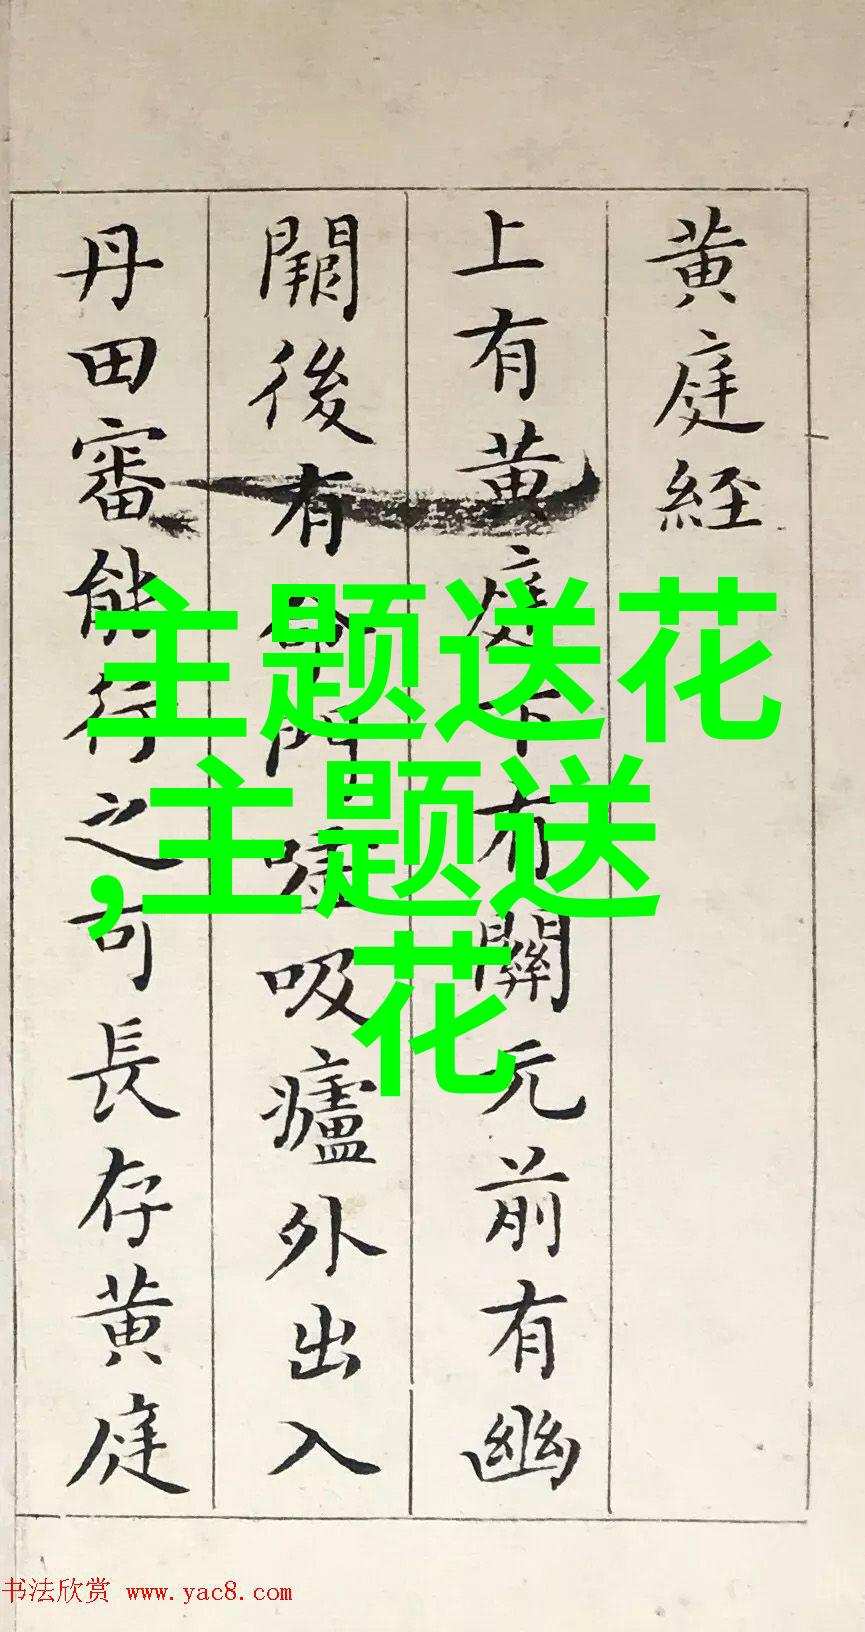 黄庭經
上有黄庭下有關元前有幽
闕後有命門嘘吸廬外出入
丹田審能行之可長存黄庭
主题送花
,主题送
花
书法欣赏 www.yac8.com